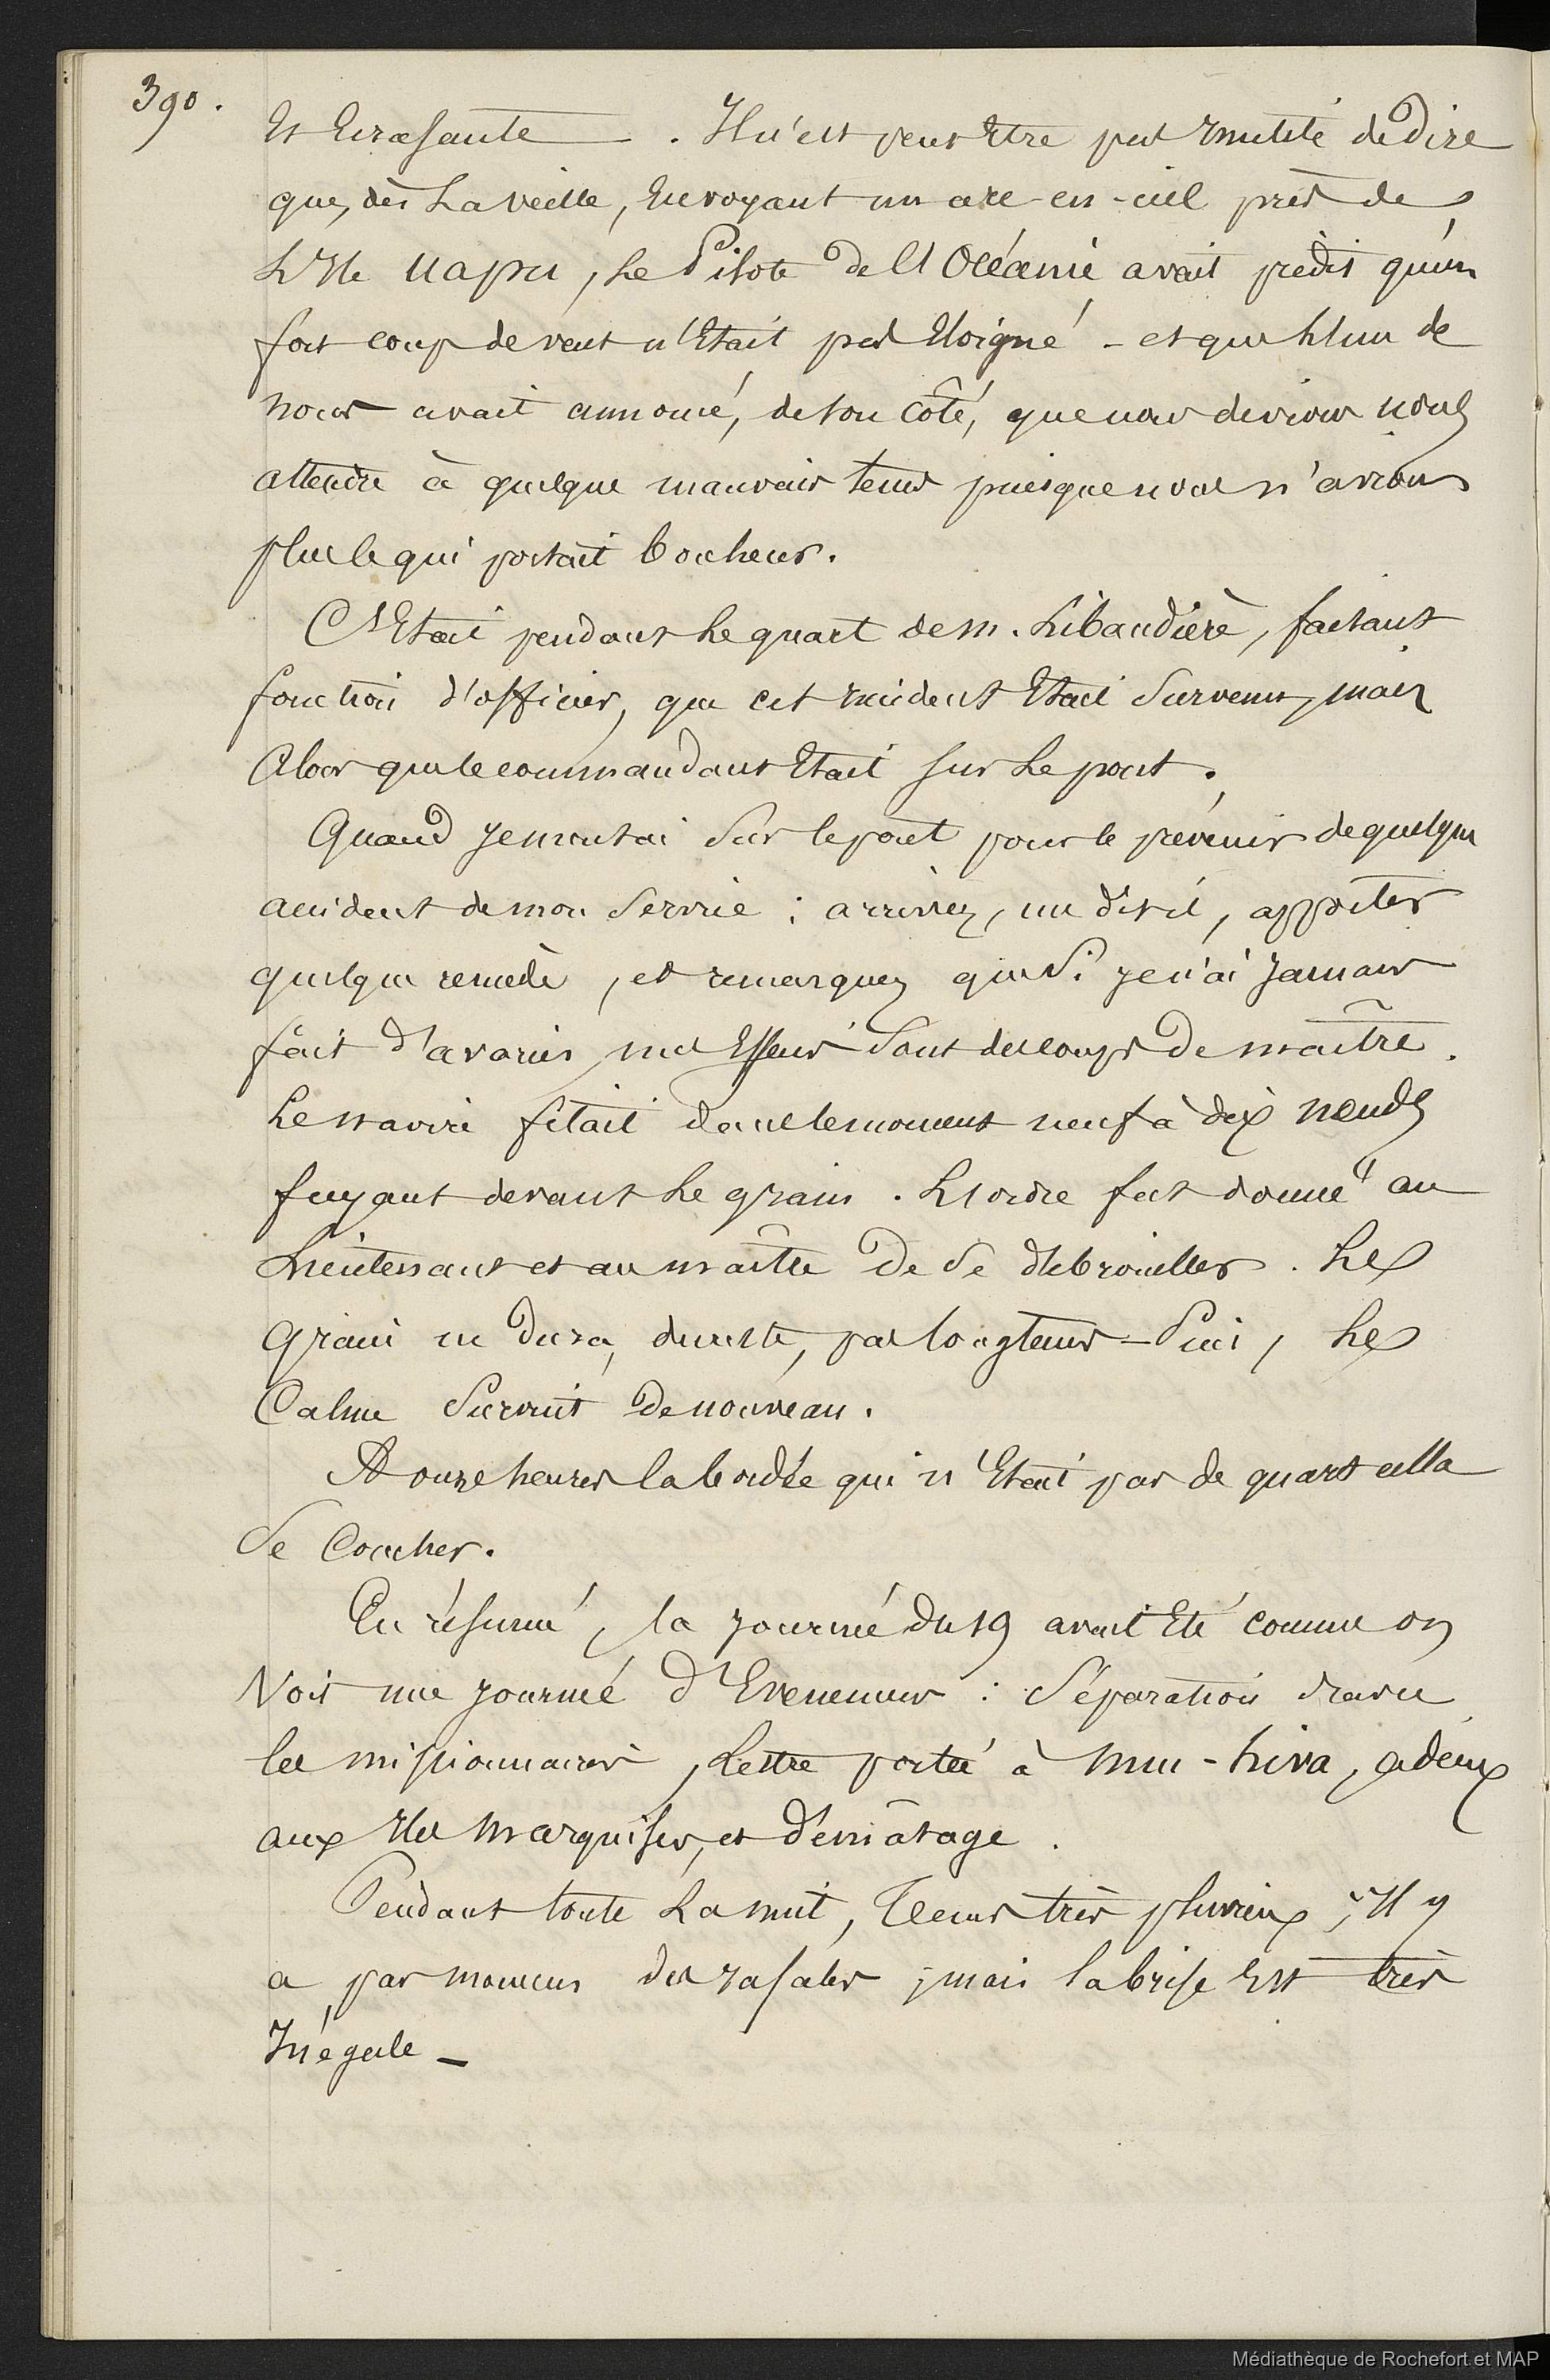 390.
Et Ecrasante. Il n'est peut Etre pas Inutile de dire
que, dès La veille, En voyant un arc-en-ciel près de
L'Ile Uapu, Le Pilote de l'Océanie avait prédit qu'un
fort coup de vent n'Etait pas Eloigné - et que l'un de
nous avait annoncé, de son côté, que nous devions nous
attendre à quelque mauvais tems puisque nous n'avions
plus ce qui portait bonheur.
C'Etait pendant Le quart de M. Libaudière, faisant
fonction d'officier, que cet Incident Etait Survenu, mais
Alors que le commandant Etait sur Le pont.
Quand Je montai Sur le pont pour le prévenir de quelque
accident de mon Service : arrivez, me dit-il, apporter
quelque remède, et remarquez que Si Je n'ai Jamais
fait d'avaries, mes Essais Sont des coups de maître.
Le navire filait dans le moment neuf à dix nœuds
fuyant devant Le grain. L'ordre fut donné au
Lieutenant et au maître de Se débrouiller. Le
Grain ne dura, du reste, pas longtems - Puis, Le
Calme Survint de nouveau.
A onze heures la bordée qui n'Etait pas de quart alla
Se Coucher.
En résumé, la Journée du 19 avait Eté comme on
Voit une Journée d'Evenemens : Séparation d'avec
les missionnaires, Lettre portée à Nuu-hiva, adieux
aux Iles Marquises, et démâtage.
Pendant toute La nuit, Tems très pluvieux ; Il y
a par momens des rafales ; mais la brise Est très
Inégale _
Médiathèque de Rochefort et MAP